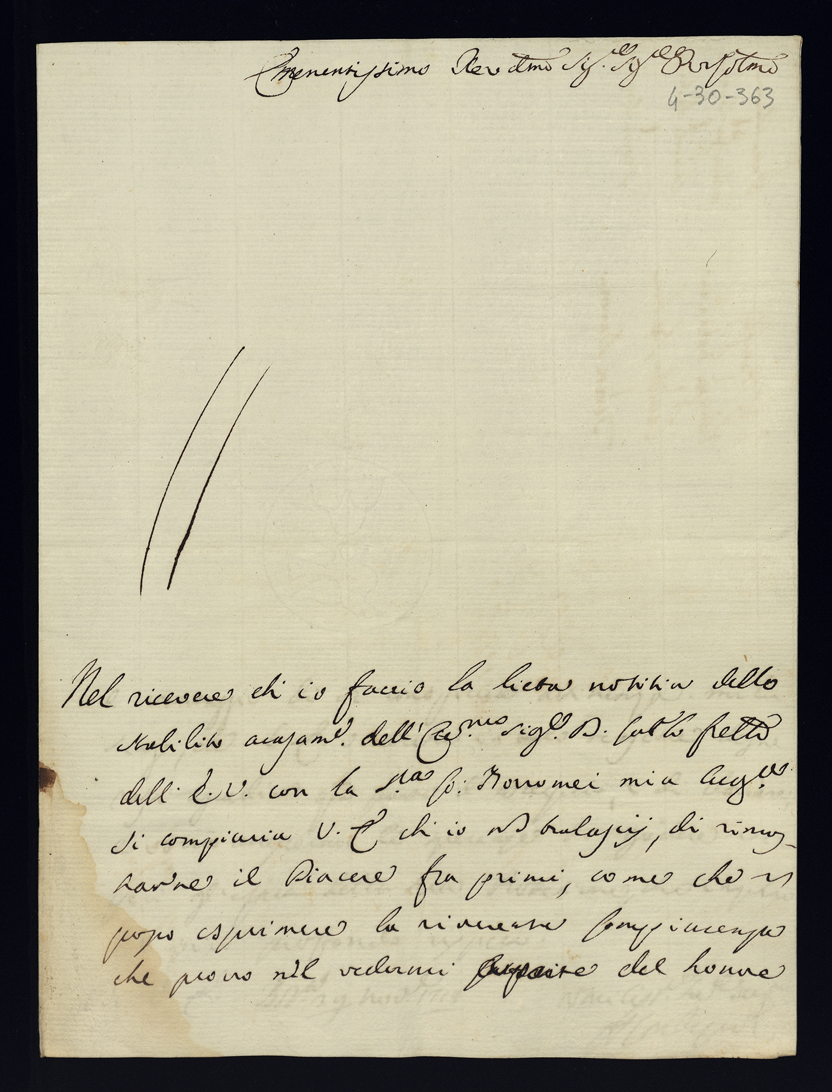 Eminentissimo Rev.dmo Sig.r Sig.r
4-30-363
Nel ricevere ch io faccio la lieta notitia dello
stabilito acasam.to dell' Ecc.mo Sig.r D. fretto
dell' E. V. con la S.ra Co: Borromei mia
si compiacia V. E. ch io nō tralascij, di rimos-
trarne il Piacere fra primi, come che n
posso esprimere la riverente compiacenza
che provo nel vedermi del honore